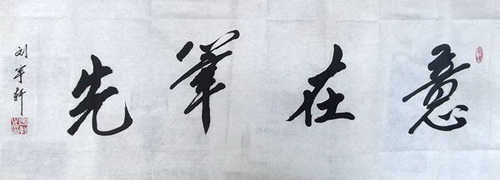 意在笔先
刘宇轩